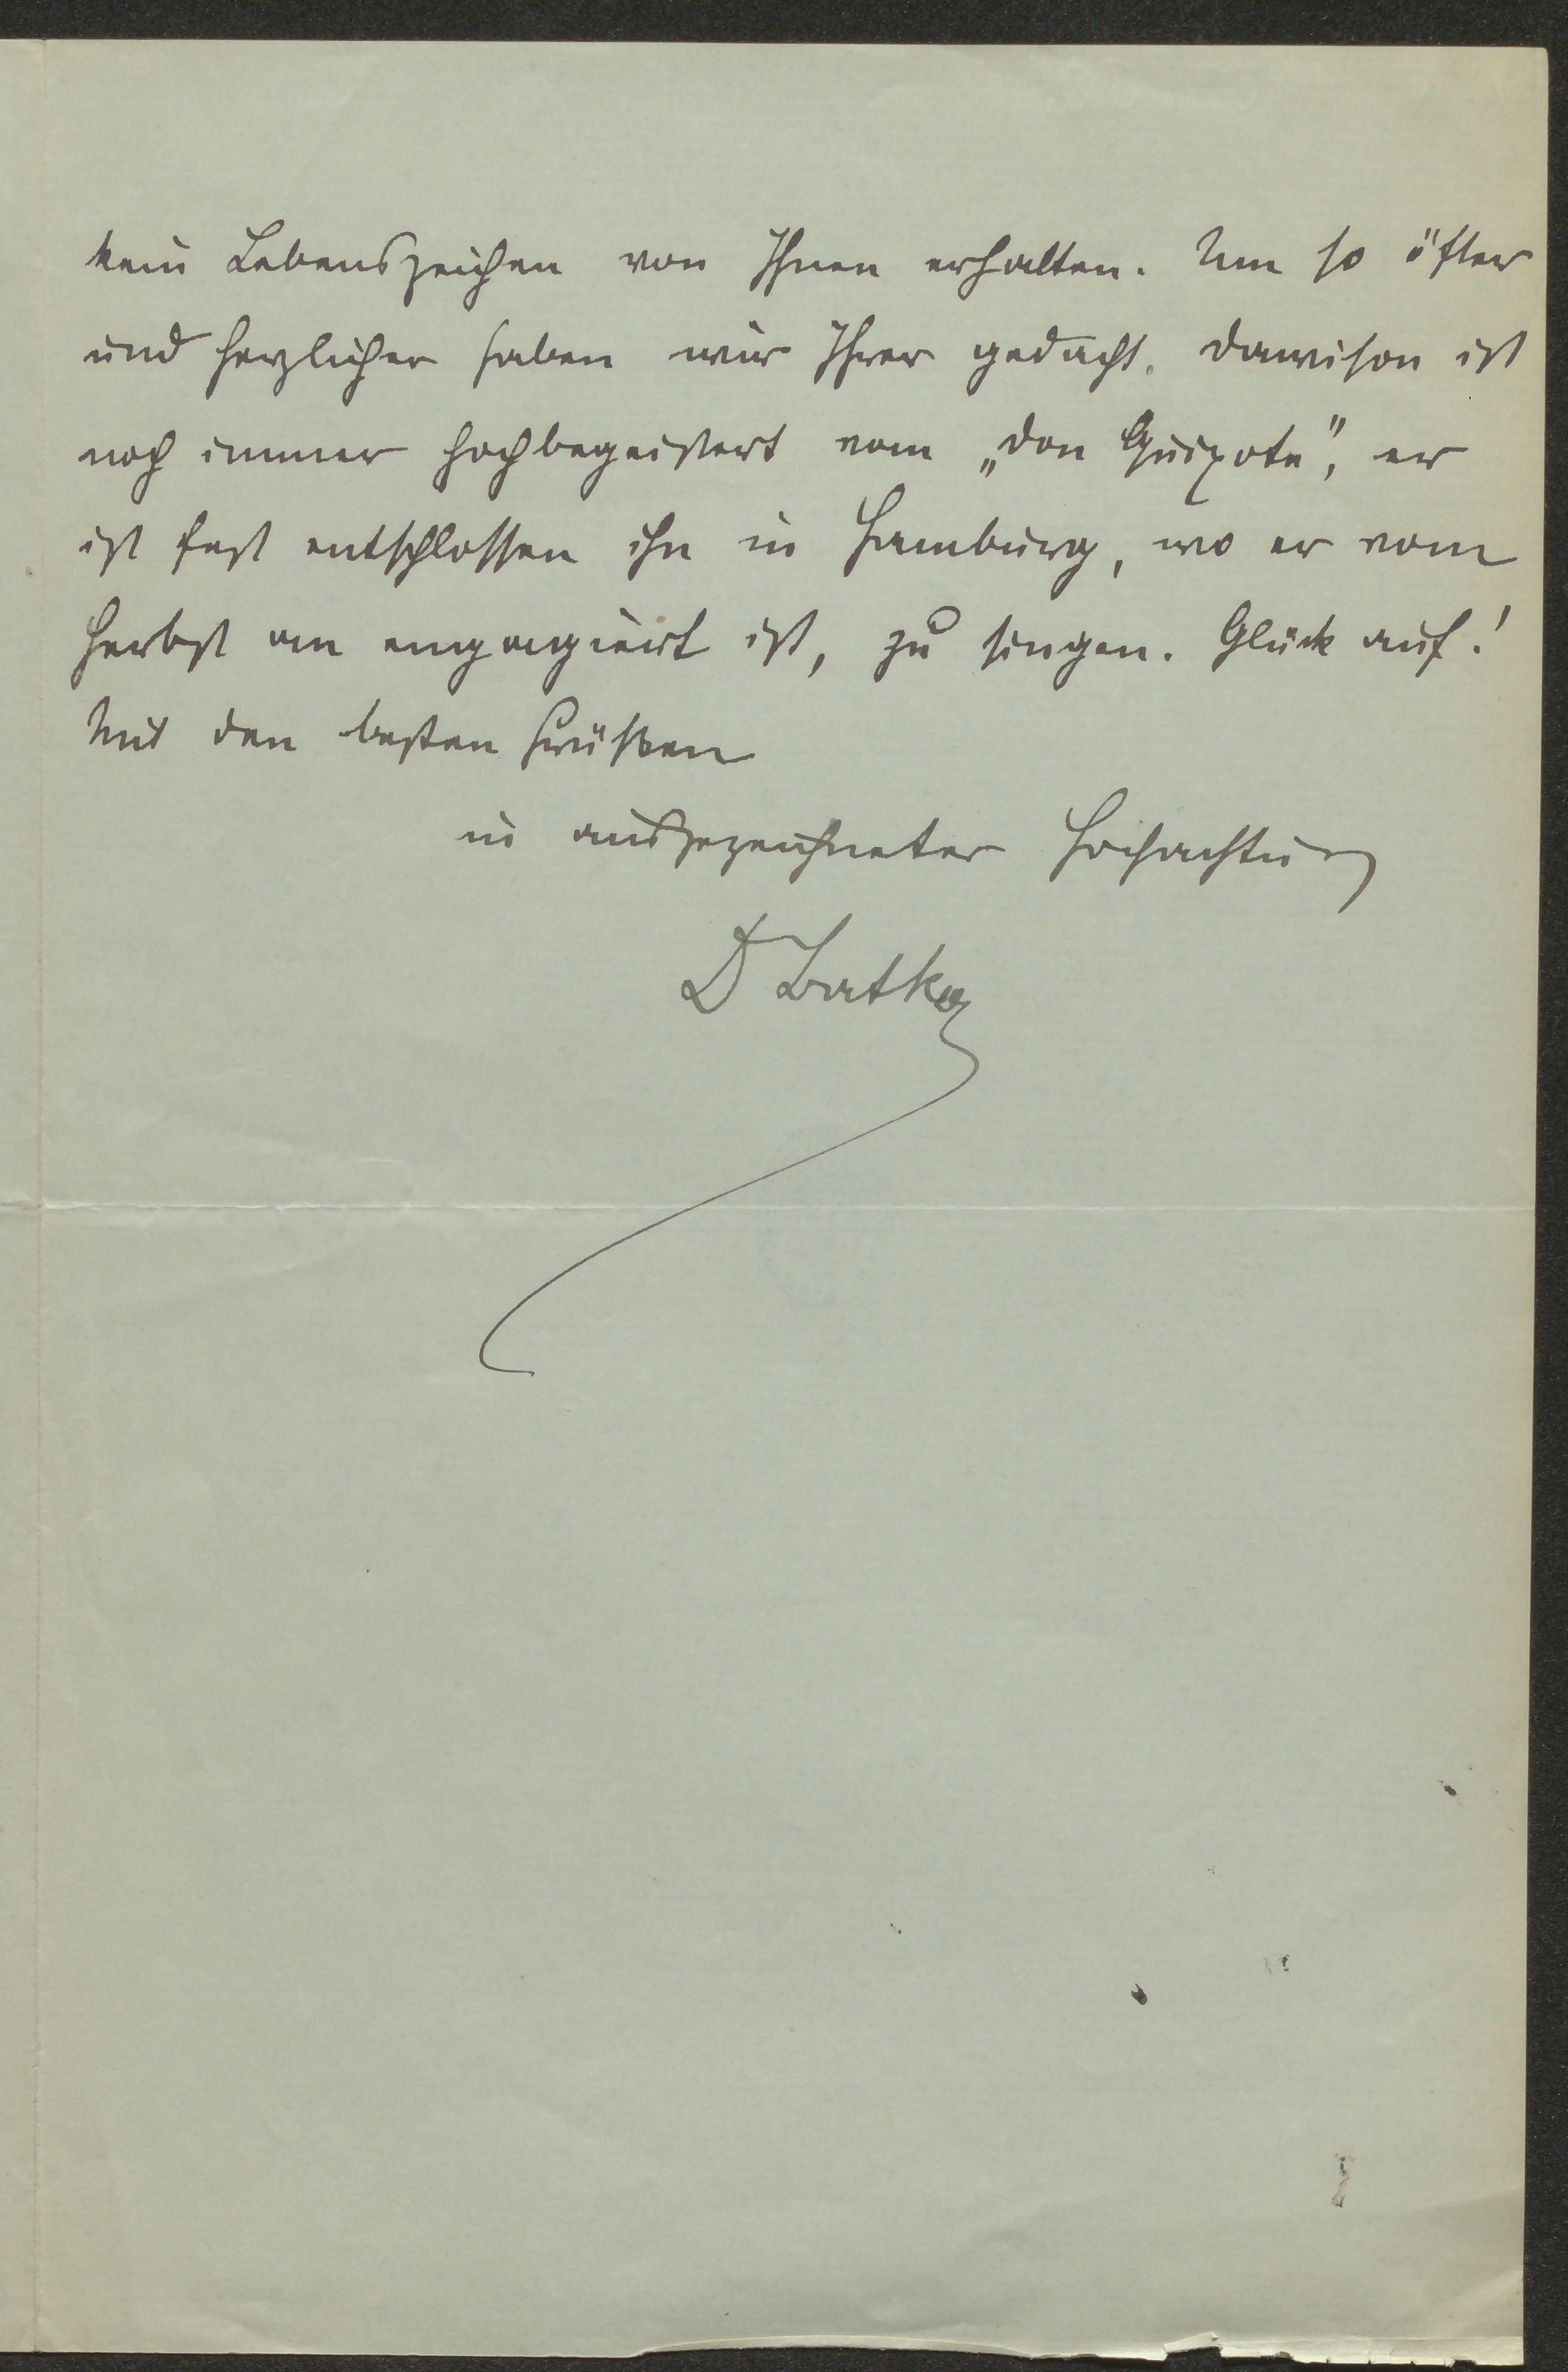 kein Lebenszeichen von Ihnen erhalten. Um so öfter
und herzlicher haben wir Ihrer gedacht. Dawison ist
noch immer hochbegeistert vom „Don Quixote", er
ist fest entschlossen ihn in Hamburg, wo er vom
Herbst an engagiert ist, zu singen. Glück auf!
Mit den besten Grüßen
in ausgezeichneter Hochachtung
Dr Batka